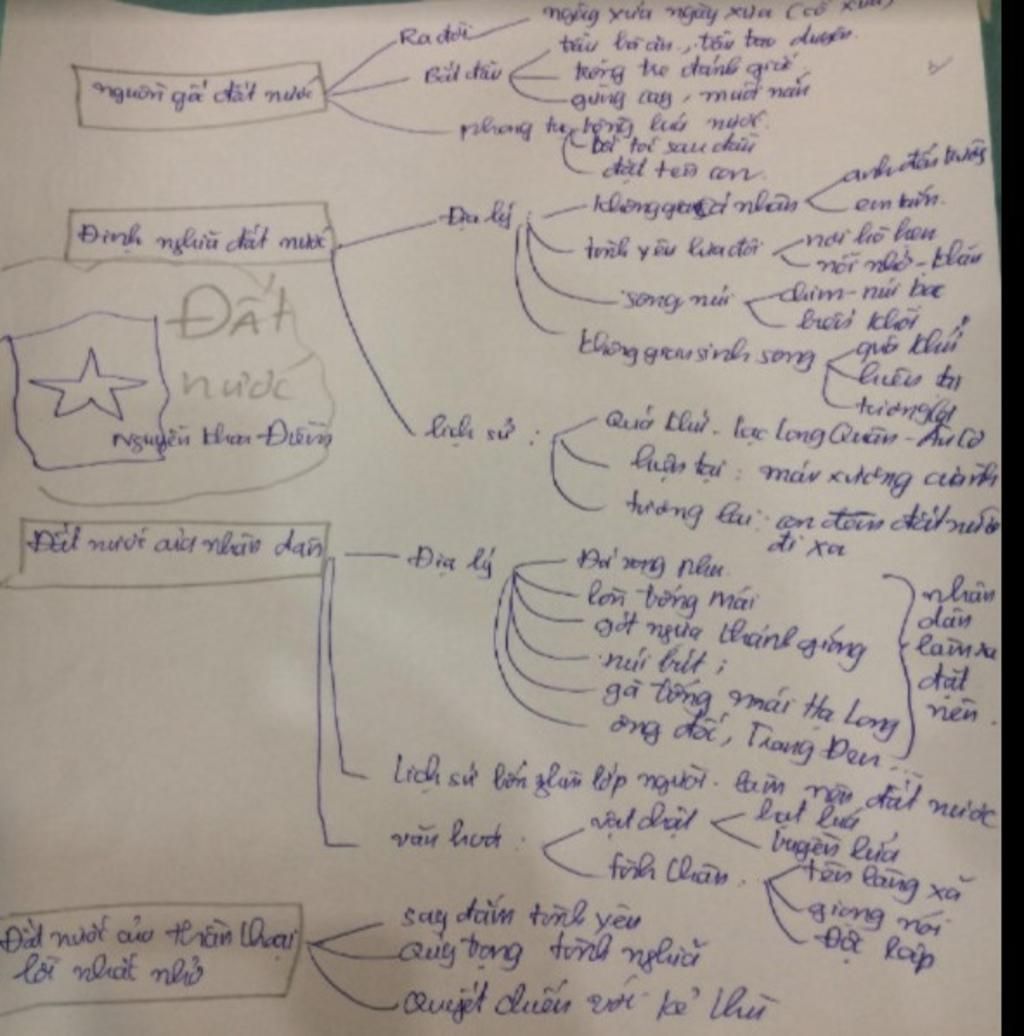 ngày xưa ngày xưa
Ra đời
Bắt đầu
tre đánh giặc
gừng cay, muối mặn
nguồn gố đất nước
phong tục
trồng lúa nước
bới tóc sau đầu
đặt tên con
Định nghĩa đất nước
Địa lý :
không gian cá nhân
anh đến trường
em tắm
tình yêu lứa đôi
nơi hò hẹn
nỗi nhớ - khăn
song núi
chim - núi bạc
biển khơi
không gian sinh song
quá khứ
hiện tại
tương lai
Đất
nước
Nguyễn Khoa Điềm
lịch sử :
Quá khứ - Lạc Long Quân - Âu Cơ
hiện tại : máu xương của mình
tương lai : con đem đất nước
đi xa
Đất nước của nhân dân
Địa lý
hòn trống mái
gót ngựa thánh gióng
núi bút ;
gà trống mái Hạ Long
ông đốc, Trang Đen ...
nhân
dân
làm ra
đất
Lịch sử bốn nghìn lớp người - làm nên đất nước
văn hoá :
vật chất
hạt lúa
truyền lửa
tinh thần
tên làng xã
giọng nói
Đất nước của thần thoại
lời nhắc nhở
say đắm tình yêu
quý trọng tình nghĩa
quyết chiến với kẻ thù